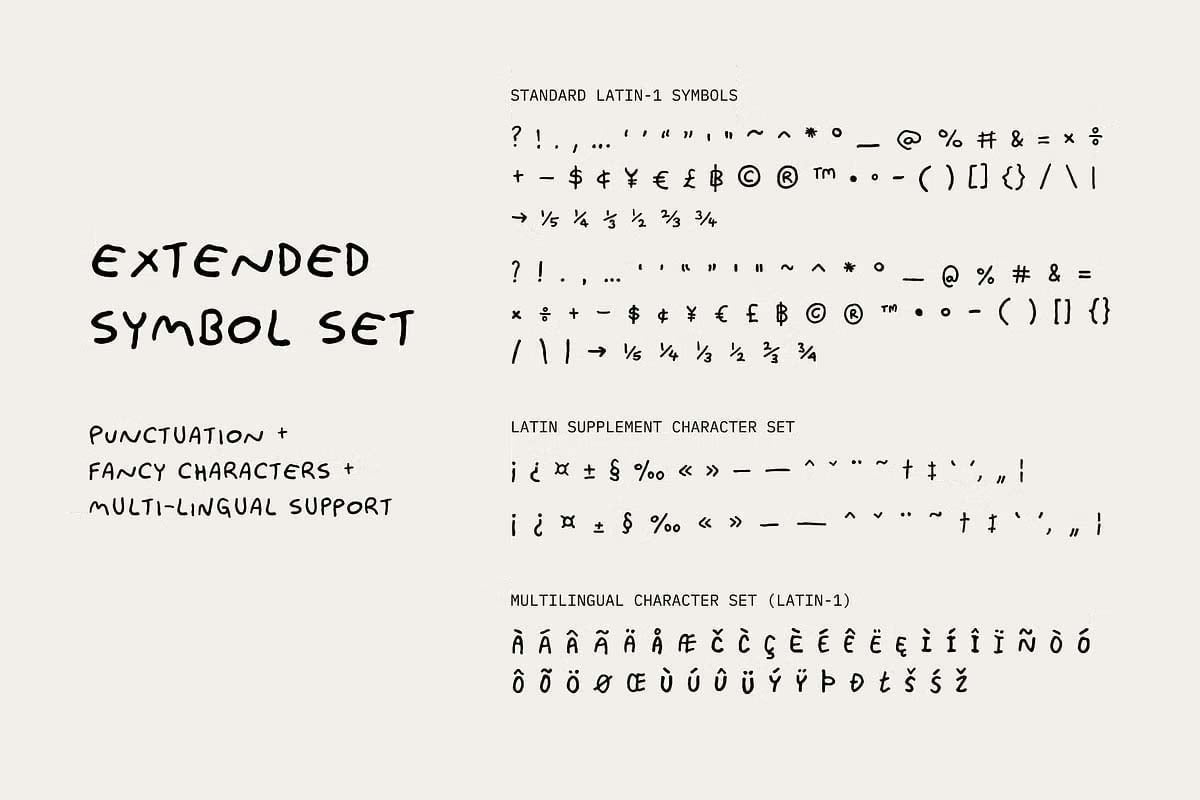 EXTENDED
SYMBOL SET
PUNCTUATION +
FANCY CHARACTERS +
MULTI-LINGUAL SUPPORT
STANDARD LATIN-1 SYMBOLS
? ! . , … ‘ ’ “ ” ' " ~ ^ * ° _ @ % # & = × ÷
+ − $ ¢ ¥ € £ ฿ © ® ™ • ◦ - ( ) [] {} / \ |
→ ⅕ ¼ ⅓ ½ ⅔ ¾
? ! . , … ‘ ’ “ ” ' " ~ ^ * ° _ @ % # & =
× ÷ + − $ ¢ ¥ € £ ฿ © ® ™ • ◦ - ( ) [] {}
/ \ | → ⅕ ¼ ⅓ ½ ⅔ ¾
LATIN SUPPLEMENT CHARACTER SET
¡ ¿ ¤ ± § ‰ « » – — ˆ ˇ ¨ ˜ † ‡ ` ´ ‚ „ ¦
¡ ¿ ¤ ± § ‰ « » – — ˆ ˇ ¨ ˜ † ‡ ` ´ ‚ „ ¦
MULTILINGUAL CHARACTER SET (LATIN-1)
À Á Â Ã Ä Å Æ Č C̀ Ç È É Ê Ë Ę Ì Í Î Ï Ñ Ò Ó
Ô Õ Ö Ø Œ Ù Ú Û Ü Ý Ÿ Þ Ð ŧ Š Ś Ž